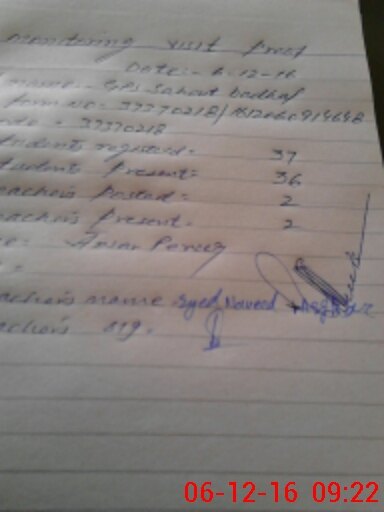 monitoring visit proof
Date:- 6-12-16
name:- GPS Sahout badhal
form no:- 37370218/161206091464B
code = 37370218
students registered = 37
students present = 36
teachers posted = 2
teachers present = 2
e: Ansar Parvez
teachers name Syed Naveed Asghar
teachers sig.
06-12-16 09:22